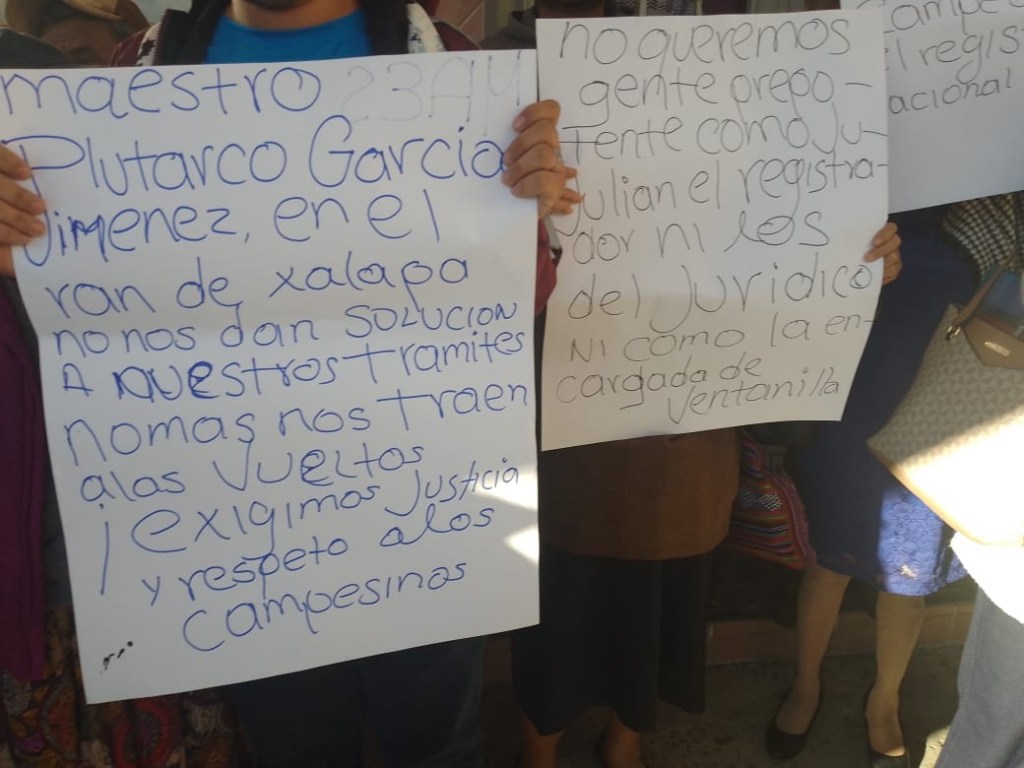 maestro
Plutarco Garcia
Jimenez, en el
ran de xalapa
no nos dan SOLUCION
A NUESTROS TRAMITES
nomas nos traen
alas vueltas
¡ exigimos justicia
y respeto a los
campesinos
no queremos
gente prepo-
tente como Ju-
julian el registra-
dor ni los
del juridico
Ni como la en-
cargada de
ventanilla
campe
el regis
acional